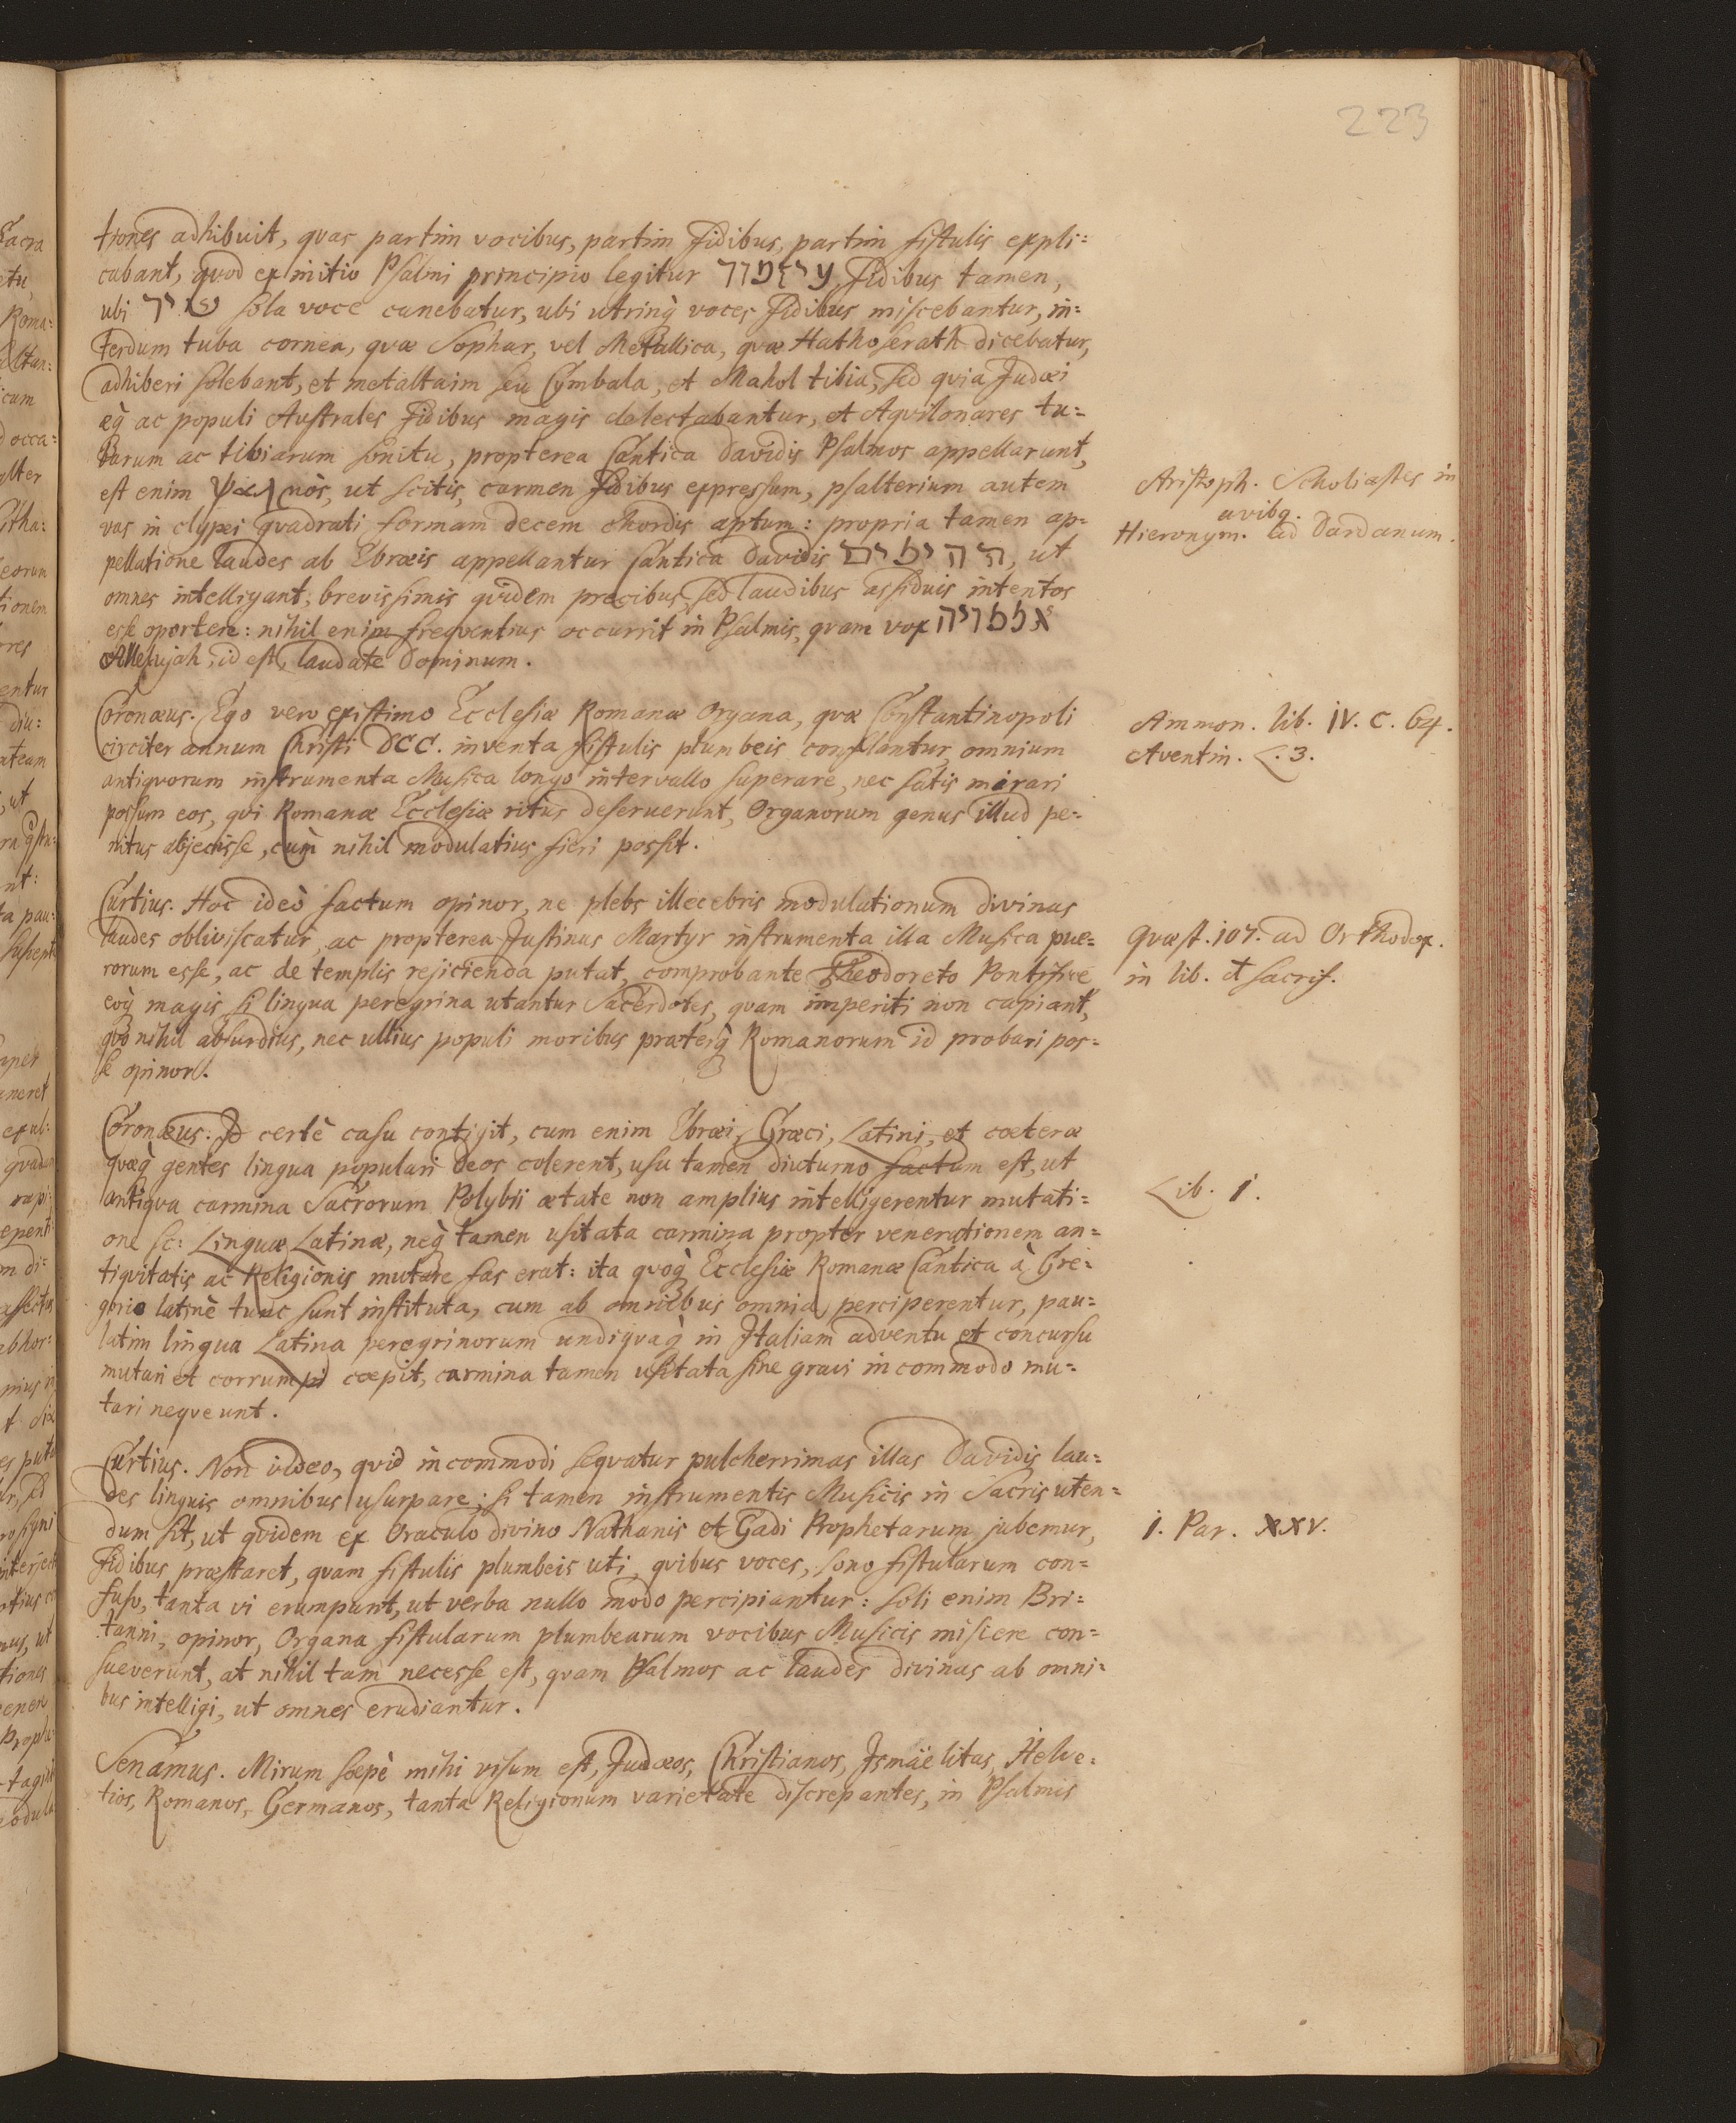 223
tiones adhibuit, quas partim vocibus, partim fidibus, partim fistulis expli=
cabant, quod ex initio Psalmi principio legitur fidibus tamen,
ubi שיר sola voce canebatur, ubi utrinq̀ voces fidibus miscebantur, in=
terdum tuba cornea, quæ Sophar, vel Metallica, quæ Hathoserath dicebatur,
adhiberi solebant, et metaltaim seu Cymbala, et Mahol tibia, sed quia Judæi
æq̀ ac populi Australes fidibus magis delectabantur, et Aquilonares tu=
barum ac tibiarum sonitu, propterea Cantica Davidis Psalmos appellarunt,
est enim ψαλμὸς, ut scitis, carmen fidibus expressum, psalterium autem
vas in clypei quadrati formam decem chordis aptum: propria tamen ap=
pellatione laudes ab Ebræis appellantur Cantica Davidis תהילים, ut
omnes intelligant, brevissimis quidem precibus, sed laudibus assiduis intentos
esse oportere: nihil enim frequentius occurrit in Psalmis, quam vox
Allelujah, id est, laudate Dominum.
Aristoph. Scholiastes in
avibq.
Hieronym. ad Dardanum.
Coronæus. Ego vero existimo Ecclesiæ Romanæ Organa, quæ Constantinopoli
circiter annum Christi DCC. inventa fistulis plumbeis conflantur, omnium
antiquorum instrumenta Musica longo intervallo superare, nec satis mirari
possum eos, qui Romanæ Ecclesiæ ritus deseruerunt, Organorum genus illud pe=
nitus abjecisse, cum nihil modulatius fieri possit.
Ammon. lib. IV. c. 64.
Aventin. L. 3.
Curtius. Hoc ideò factum opinor, ne plebs illecebris modulationum divinas
laudes obliviscatur, ac propterea Justinus Martyr instrumenta illa Musica pue=
rorum esse, ac de templis rejicienda putat, comprobante Theodoreto Pontifice
eoq̀ magis si lingua peregrina utantur Sacerdotes, quam imperiti non capiant,
quo nihil absurdius, nec ullius populi moribus præterq̀ Romanorum id probari pos=
se opinor.
Quæst. 107. ad Orthodox.
in lib. sacrif.
Coronæus. Id certè casu contigit, cum enim Ebræi, Græci, Latini, et cæteræ
quæq̀ gentes lingua populari Deos colerent, usu tamen diuturno factum est, ut
antiqua carmina Sacrorum Polybii ætate non amplius intelligerentur mutati=
one sc: Linguæ Latinæ, neq̀ tamen usitata carmina propter venerationem an=
tiquitatis ac Religionis mutare fas erat: ita quoq̀ Ecclesiæ Romanæ Cantica à Gre=
gorio latinè tunc sunt instituta, cum ab omnibus omnia perciperentur, pau=
latim lingua Latina peregrinorum undiquaq̀ in Italiam adventu et concursu
mutari et corrumpi cœpit, carmina tamen usitata sine gravi incommodo mu=
tari nequeunt.
Lib. I.
Curtius. Non video, quid incommodi sequatur pulcherrimas illas Davidis lau=
des linguis omnibus usurpare; si tamen instrumentis Musicis in Sacris uten=
dum sit, ut quidem ex Oraculo divino Nathanis et Gadi Prophetarum jubemur,
fidibus præstaret, quam fistulis plumbeis uti, quibus voces, sono fistularum con=
fuso, tanta vi erumpunt, ut verba nullo modo percipiantur: soli enim Bri=
tanni, opinor, Organa fistularum plumbearum vocibus Musicis miscere con=
sueverunt, at nihil tam necesse est, quam Psalmos ac laudes divinas ab omni=
bus intelligi, ut omnes erudiantur.
I. Par. XXV.
Senamus. Mirum sæpè mihi visum est, Judæos, Christianos, Ismäelitas, Helve=
tios, Romanos, Germanos, tanta Religionum varietate discrepantes, in Psalmis